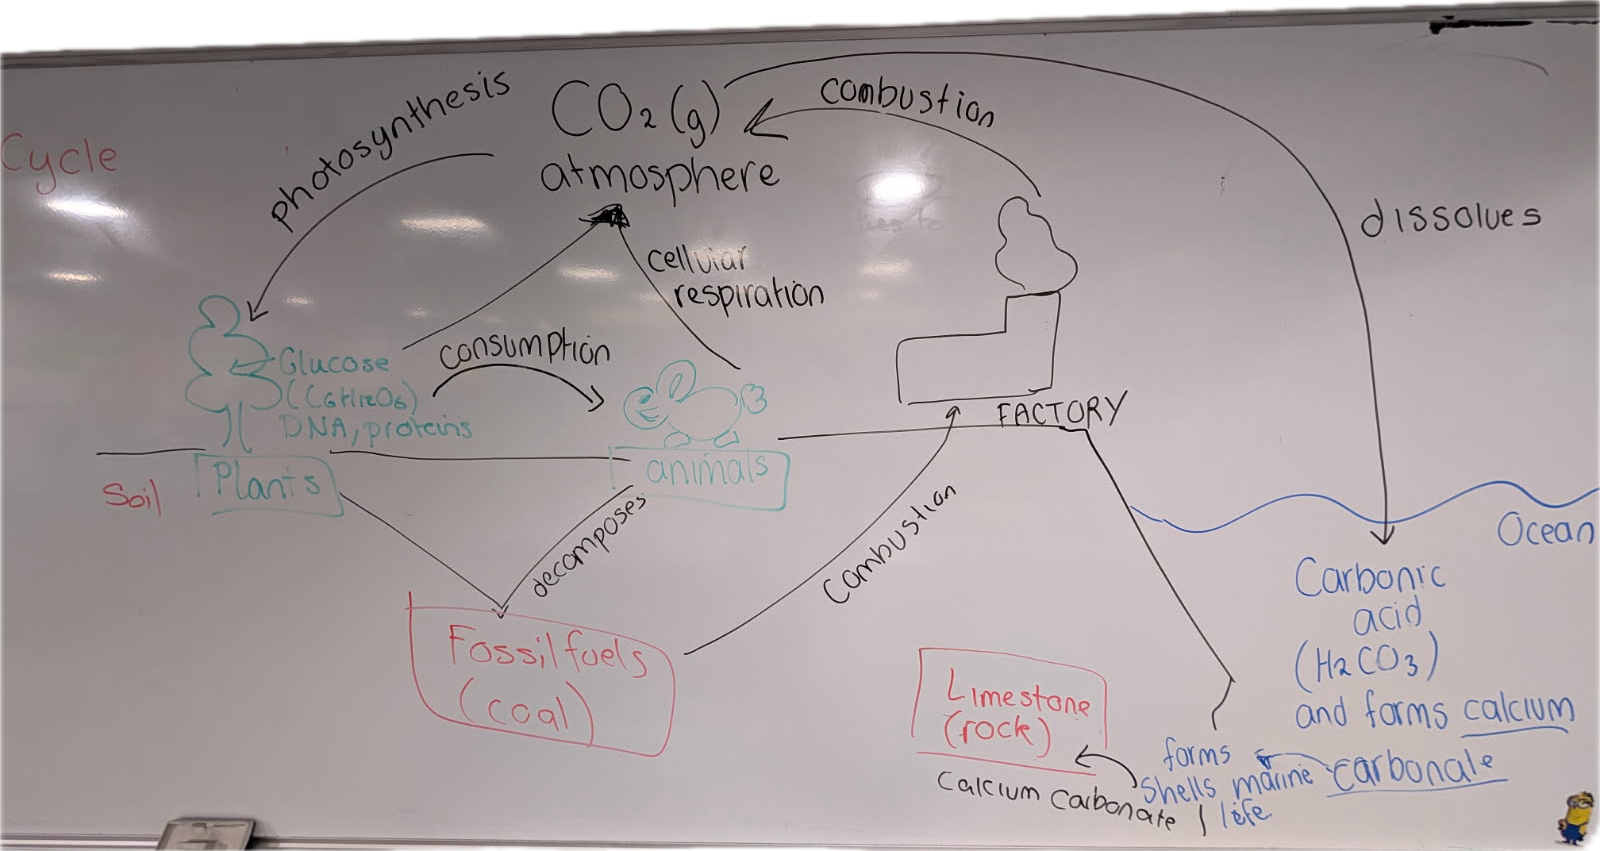 Cycle
photosynthesis
CO₂ (g)
atmosphere
combustion
dissolves
cellular
respiration
consumption
Glucose
(C6H12O6)
DNA, proteins
Plants
animals
Soil
FACTORY
decomposes
Combustion
Fossil fuels
(coal)
Ocean
Carbonic
acid
(H2CO3)
and forms calcium
carbonate
forms
Shells marine
life.
Limestone
(rock)
Calcium carbonate